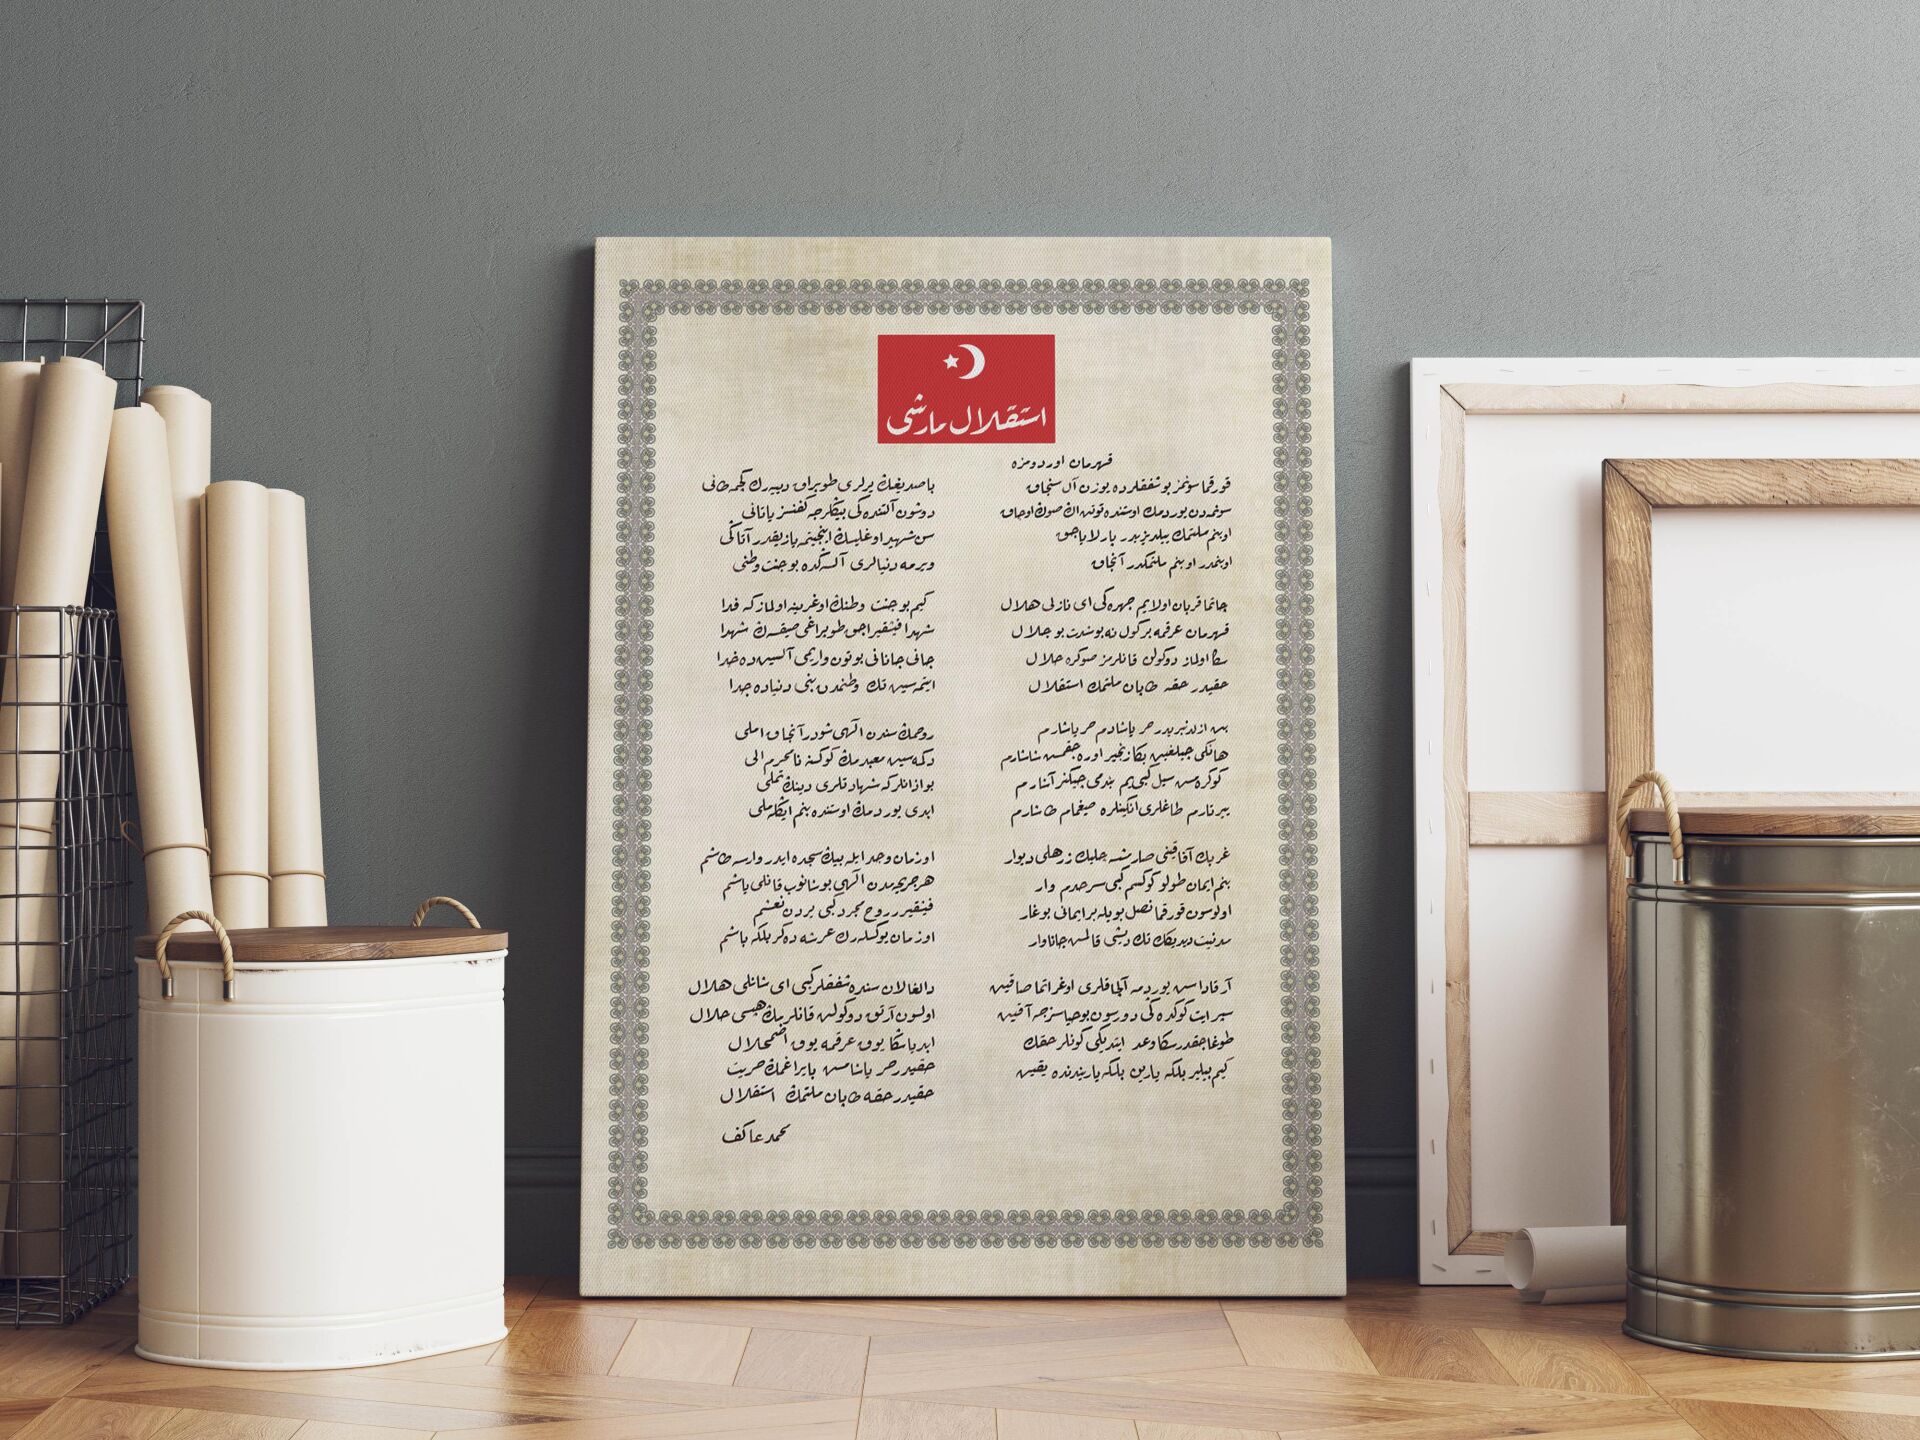 استقلال مارشی
قهرمان اوردومزه
قورقما سونمز بو شفقلرده یوزن آل سنجاق
سونمدن یوردمك اوستنده توتن اڭ صوڭ اوجاق
او بنم ملتمك ییلدیزیدر پارلایاجق
او بنمدر او بنم ملتمكدر آنجاق
چاتما قربان اولایم چهره ڭی ای نازلی هلال
قهرمان عرقمه بر كول نه بو شدت بو جلال
سڭا اولماز دوكولن قانلرمز صوكره حلال
حقیدر حقه طاپان ملتمك استقلال
بن ازلدنبریدر حر یاشادم حر یاشارم
هانكی چیلغین بڭا زنجیر اوره جقمش شاشارم
كوكره مش سیل كبی یم بندمی چیكنر آشارم
ییرتارم طاغلری انكینلره صیغمام طاشارم
غربك آفاقنی صارمشسه چلیك زرهلی دیوار
بنم ایمان طولو كوكسم كبی سرحدم وار
اولوسون قورقما نصل بویله بر ایمانی بوغار
مدنیت دیدیكك تك دیشی قالمش جاناوار
آرقاداش یوردمه آلچاقلری اوغراتما صاقین
سپر ایت كوكده ڭی دورسون بو حیاسزجه آقین
طوغاجقدر سڭا وعد ایتدیكی كونلر حقك
كیم بیلیر بلكه یارین بلكه یاریندنده یقین
باصدیغڭ یرلری طوپراق دییه رك كچمه طانی
دوشون آلتنده كی بیڭلرجه كفنسز یاتانی
سن شهید اوغلیسڭ اینجیتمه یازیقدر آتاڭی
ویرمه دنیالری آلسه ڭده بو جنت وطنی
كیم بو جنت وطنڭ اوغرینه اولماز كه فدا
شهدا فیشقیراجق طوپراغی صیقسه ڭ شهدا
جانی جانانی بوتون واریمی آلسین ده خدا
ایتمه سین تك وطنمدن بنی دنیاده جدا
روحمڭ سندن الهی شودر آنجاق املی
دكمه سین معبدمڭ كوكسنه نامحرم الی
بو اذانلر كه شهادتلری دینڭ تملی
ابدی یوردمڭ اوستنده بنم ایڭله ملی
او زمان وجد ایله بیڭ سجده ایدر وارسه طاشم
هر جریحه مدن الهی بوشانوب قانلی یاشم
فیشقیرر روح مجرد كبی یردن نعشم
او زمان یوكسله رك عرشه ده كر بلكه باشم
دالغالان سنده شفقلر كبی ای شانلی هلال
اولسون آرتق دوكولن قانلریمڭ هپسی حلال
ابدیا سڭا یوق عرقمه یوق اضمحلال
حقیدر حر یاشامش بایراغمڭ حریت
حقیدر حقه طاپان ملتمڭ استقلال
محمد عاكف